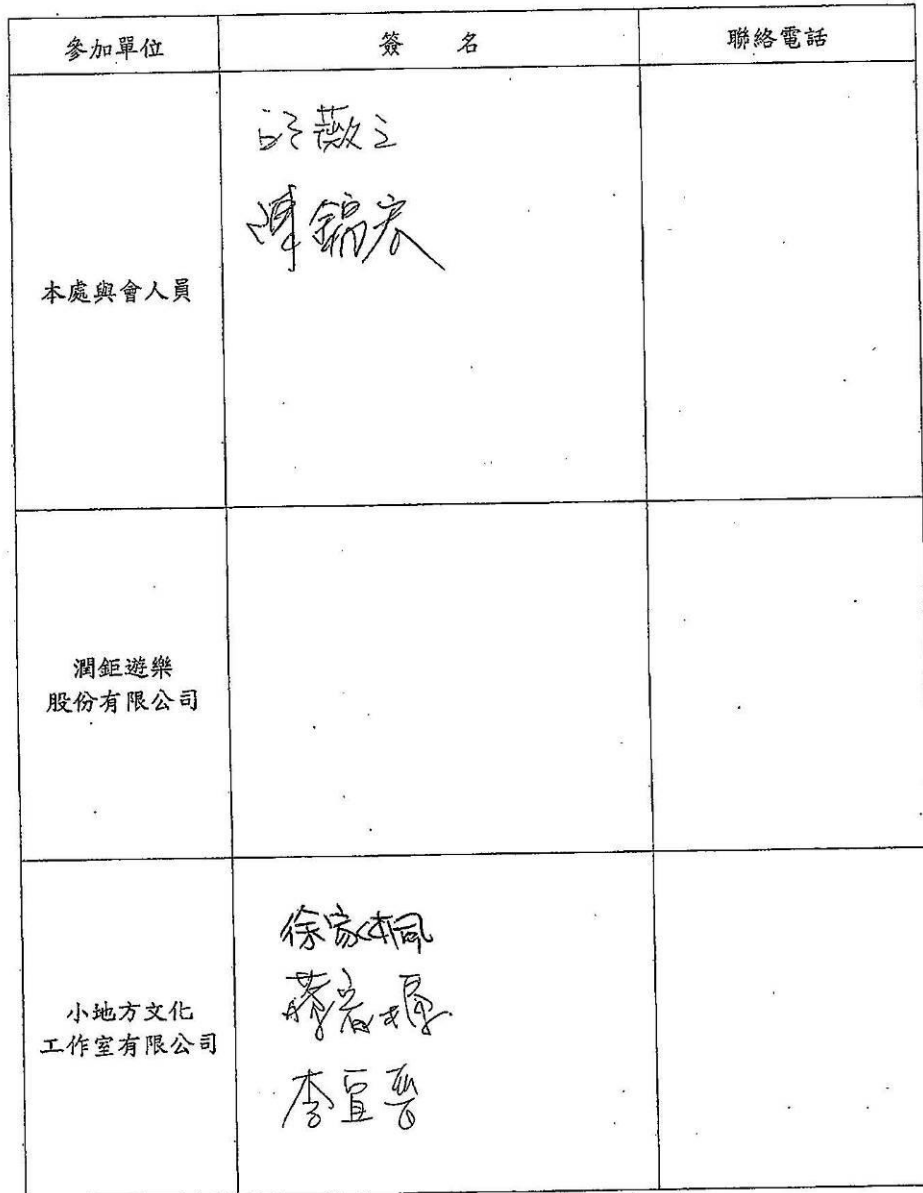 參加單位 簽 名 聯絡電話
本處與會人員
陳錦宏
潤鉅遊樂
股份有限公司
小地方文化
工作室有限公司
李宜晉